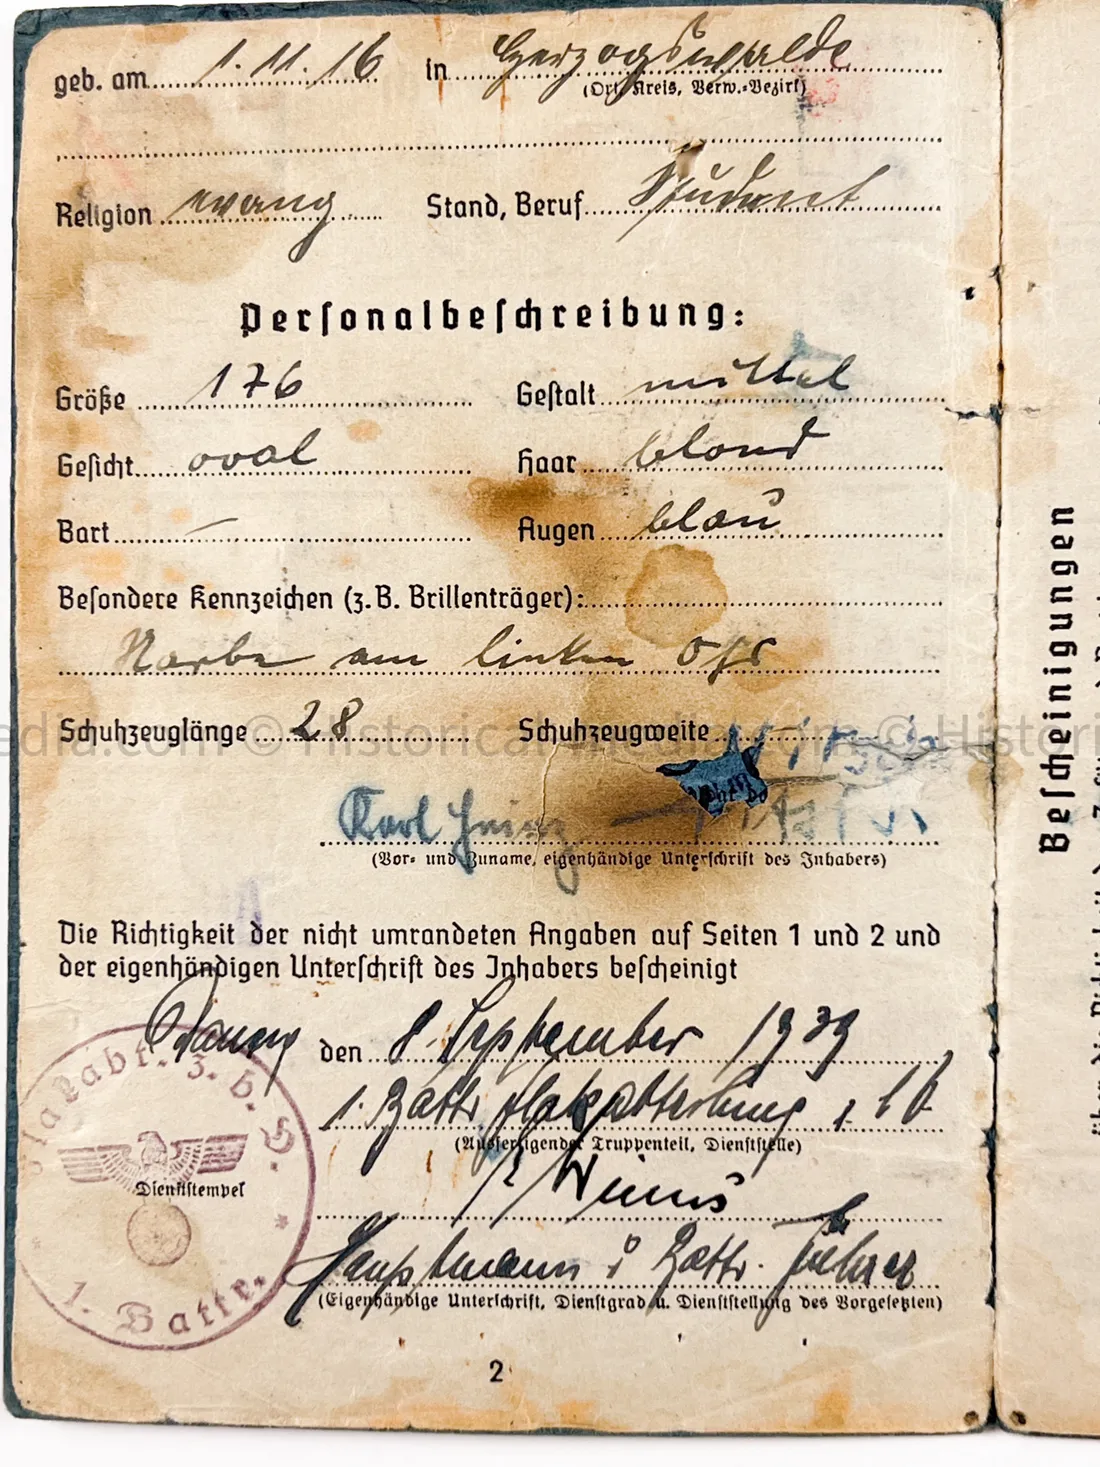 geb. am 1.11.16 in Herzogswalde
(Ort, Kreis, Verw.-Bezirk)
Religion evang Stand, Beruf Student
Personalbeschreibung:
Größe 176 Gestalt mittel
Gesicht oval Haar blond
Bart — Augen blau
Besondere Kennzeichen (z.B. Brillenträger):
Narbe am linken Ohr
Schuhzeuglänge 28 Schuhzeugweite
edia.com © Historical-media.com © Histori
Karl Heinz
(Vor- und Zuname, eigenhändige Unterschrift des Inhabers)
Die Richtigkeit der nicht umrandeten Angaben auf Seiten 1 und 2 und
der eigenhändigen Unterschrift des Inhabers bescheinigt
Danzig den 8. September 1939
1. Battr. Flakabteilung z.b.V.
(Ausfertigender Truppenteil, Dienststelle)
Flakabt. z. b. V.
Dienststempel
1. Battr.
Hauptmann u Battr. Führer
(Eigenhändige Unterschrift, Dienstgrad u. Dienststellung des Vorgesetzten)
2
Bescheinigungen